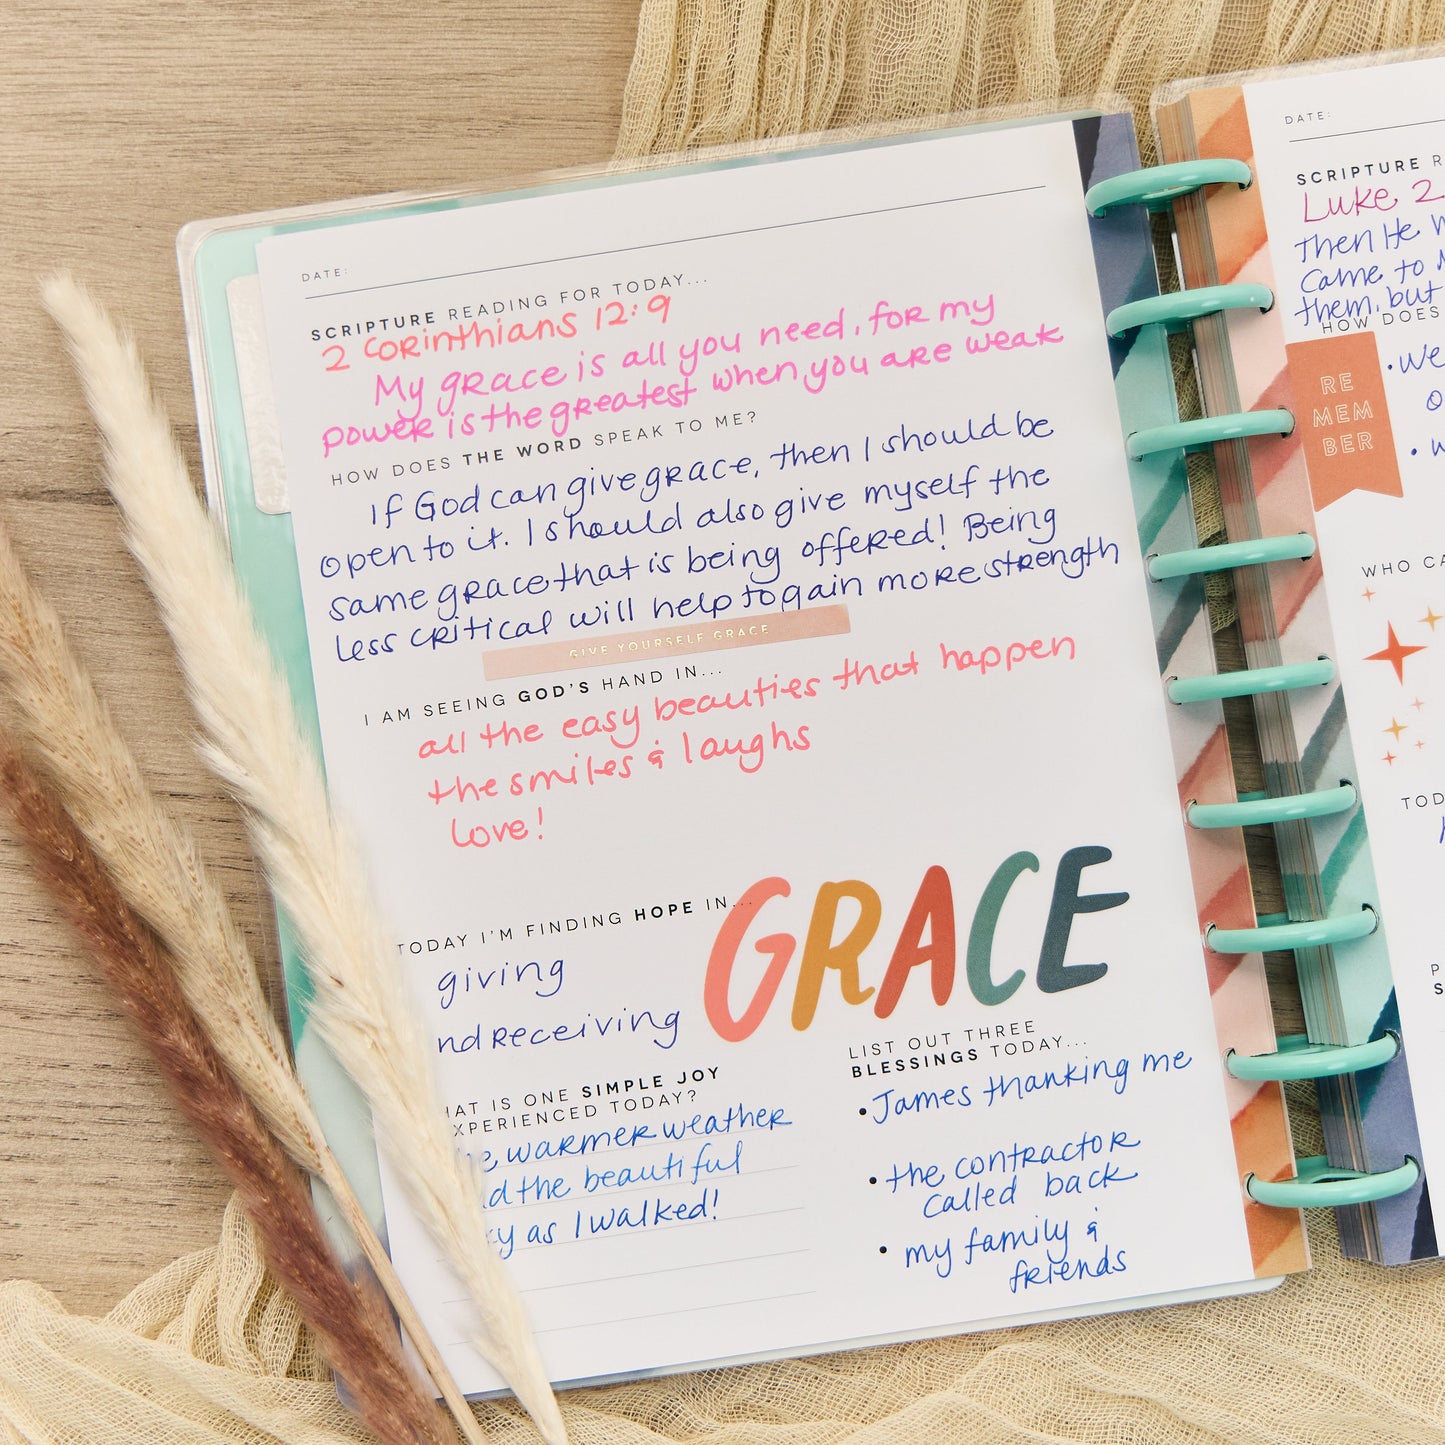 DATE:
SCRIPTURE READING FOR TODAY...
2 Corinthians 12:9
My grace is all you need, for my
power is the greatest when you are weak
HOW DOES THE WORD SPEAK TO ME?
If God can give grace, then I should be
open to it. I should also give myself the
same grace that is being offered! Being
less critical will help to gain more strength
GIVE YOURSELF GRACE
I AM SEEING GOD'S HAND IN...
all the easy beauties that happen
the smiles & laughs
love!
TODAY I'M FINDING HOPE IN...
giving
receiving
GRACE
IS ONE SIMPLE JOY
TODAY?
warmer weather
the beautiful
as I walked!
LIST OUT THREE
BLESSINGS TODAY...
• James thanking me
• the contractor
called back
• my family &
friends
DATE:
SCRIPTURE
Luke 2
Then He
came to
them, but
HOW DOES
RE
MEM
BER
• We
•
WHO